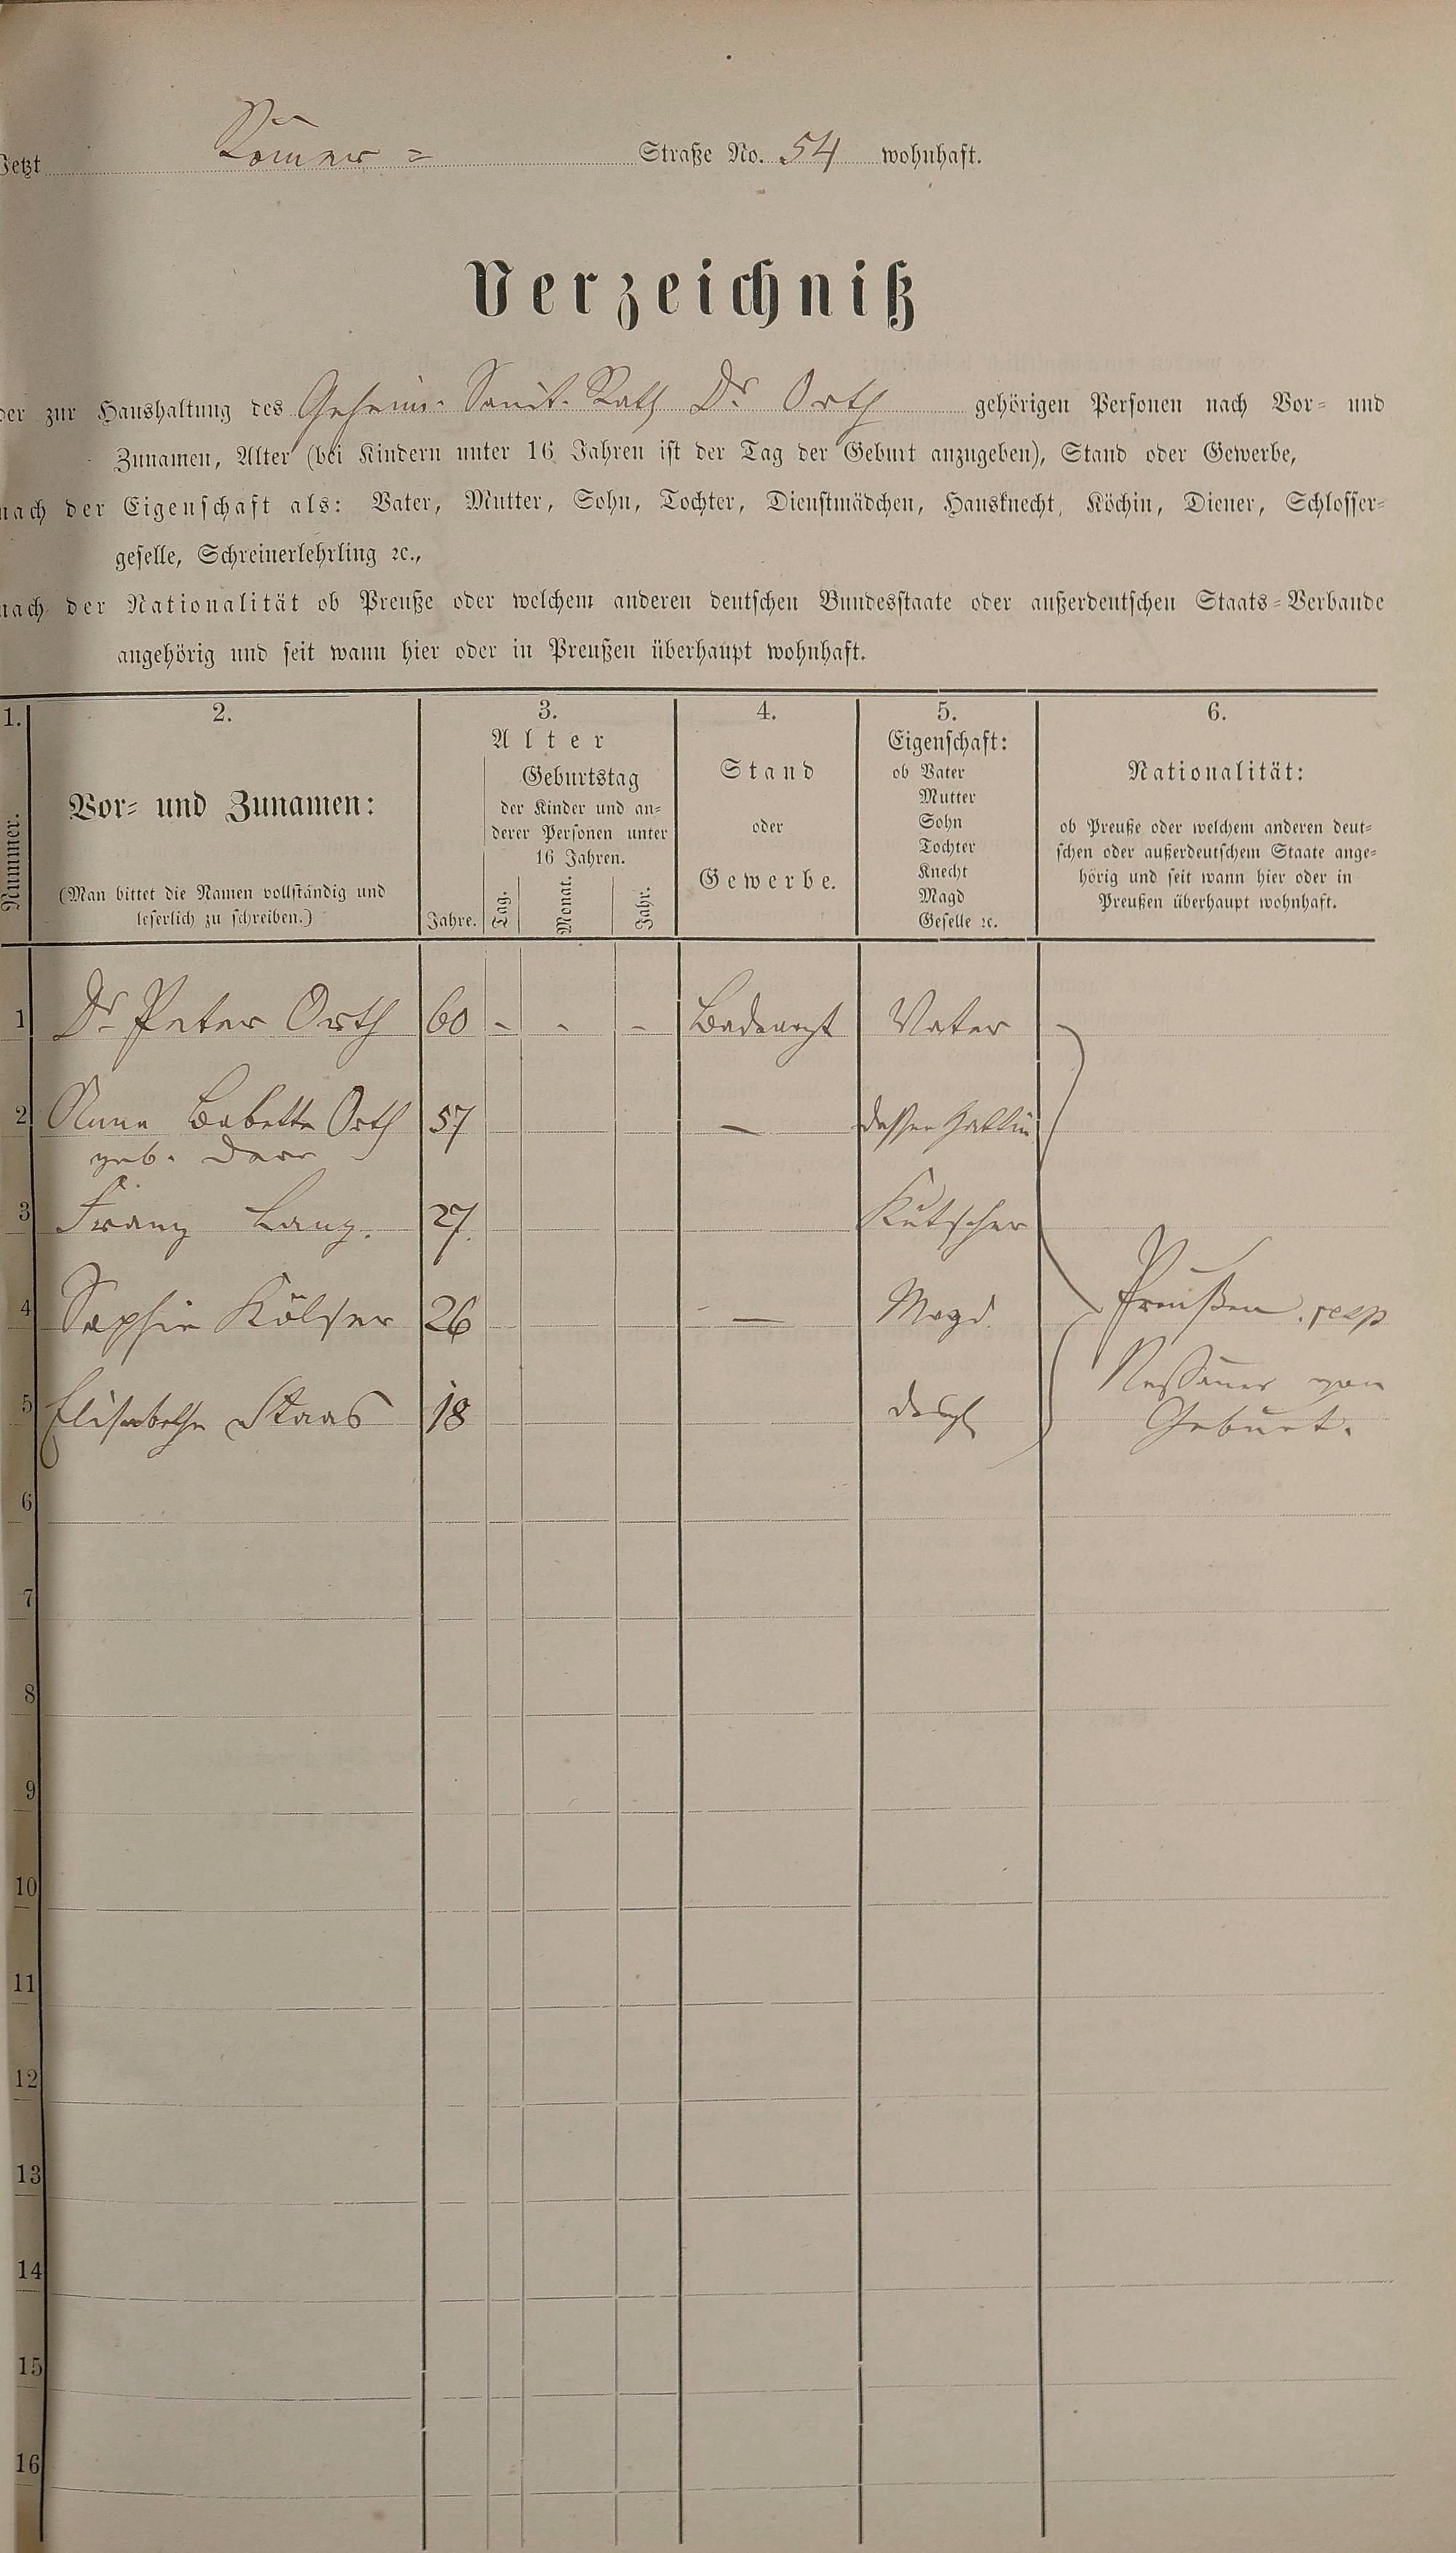 Jetzt Römer = Straße No. 54 wohnhaft.
Verzeichniß
der zur Haushaltung des Geheim. Sanit. Rath Dr Orth gehörigen Personen nach Vor- und
Zunamen, Alter (bei Kindern unter 16 Jahren ist der Tag der Geburt anzugeben), Stand oder Gewerbe,
nach der Eigenschaft als: Vater, Mutter, Sohn, Tochter, Dienstmädchen, Hausknecht, Köchin, Diener, Schlosser-
geselle, Schreinerlehrling ꝛc.,
nach der Nationalität ob Preuße oder welchem anderen deutschen Bundesstaate oder außerdeutschen Staats-Verbande
angehörig und seit wann hier oder in Preußen überhaupt wohnhaft.
1.
Nummer.
2.
Vor- und Zunamen:
(Man bittet die Namen vollständig und
leserlich zu schreiben.)
3.
Alter
Jahre.
Geburtstag
der Kinder und an-
derer Personen unter
16 Jahren.
Tag.
Monat.
Jahr.
4.
Stand
oder
Gewerbe.
5.
Eigenschaft:
ob Vater
Mutter
Sohn
Tochter
Knecht
Magd
Geselle ꝛc.
6.
Nationalität:
ob Preuße oder welchem anderen deut-
schen oder außerdeutschem Staate ange-
hörig und seit wann hier oder in
Preußen überhaupt wohnhaft.
1 Dr Peter Orth 60 - - - Badearzt Vater
2 Anna Babette Orth 57 — dessen Gattin
geb.
3 Franz Lang. 27. Kutscher
4 Sophie Kölser 26 — Magd. Preußen. resp
5 Elisabethe Staas 18 desgl Nassauer von
Geburt.
6
7
8
9
10
11
12
13
14
15
16